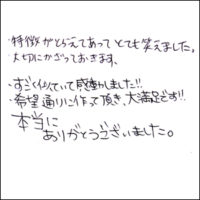 ・特徴がとらえてあってとても笑えました。
大切にかざっておきます。
・すごく似ていて感動しました!!
・希望通りに作って頂き、大満足です!!
本当に
ありがとうございました。